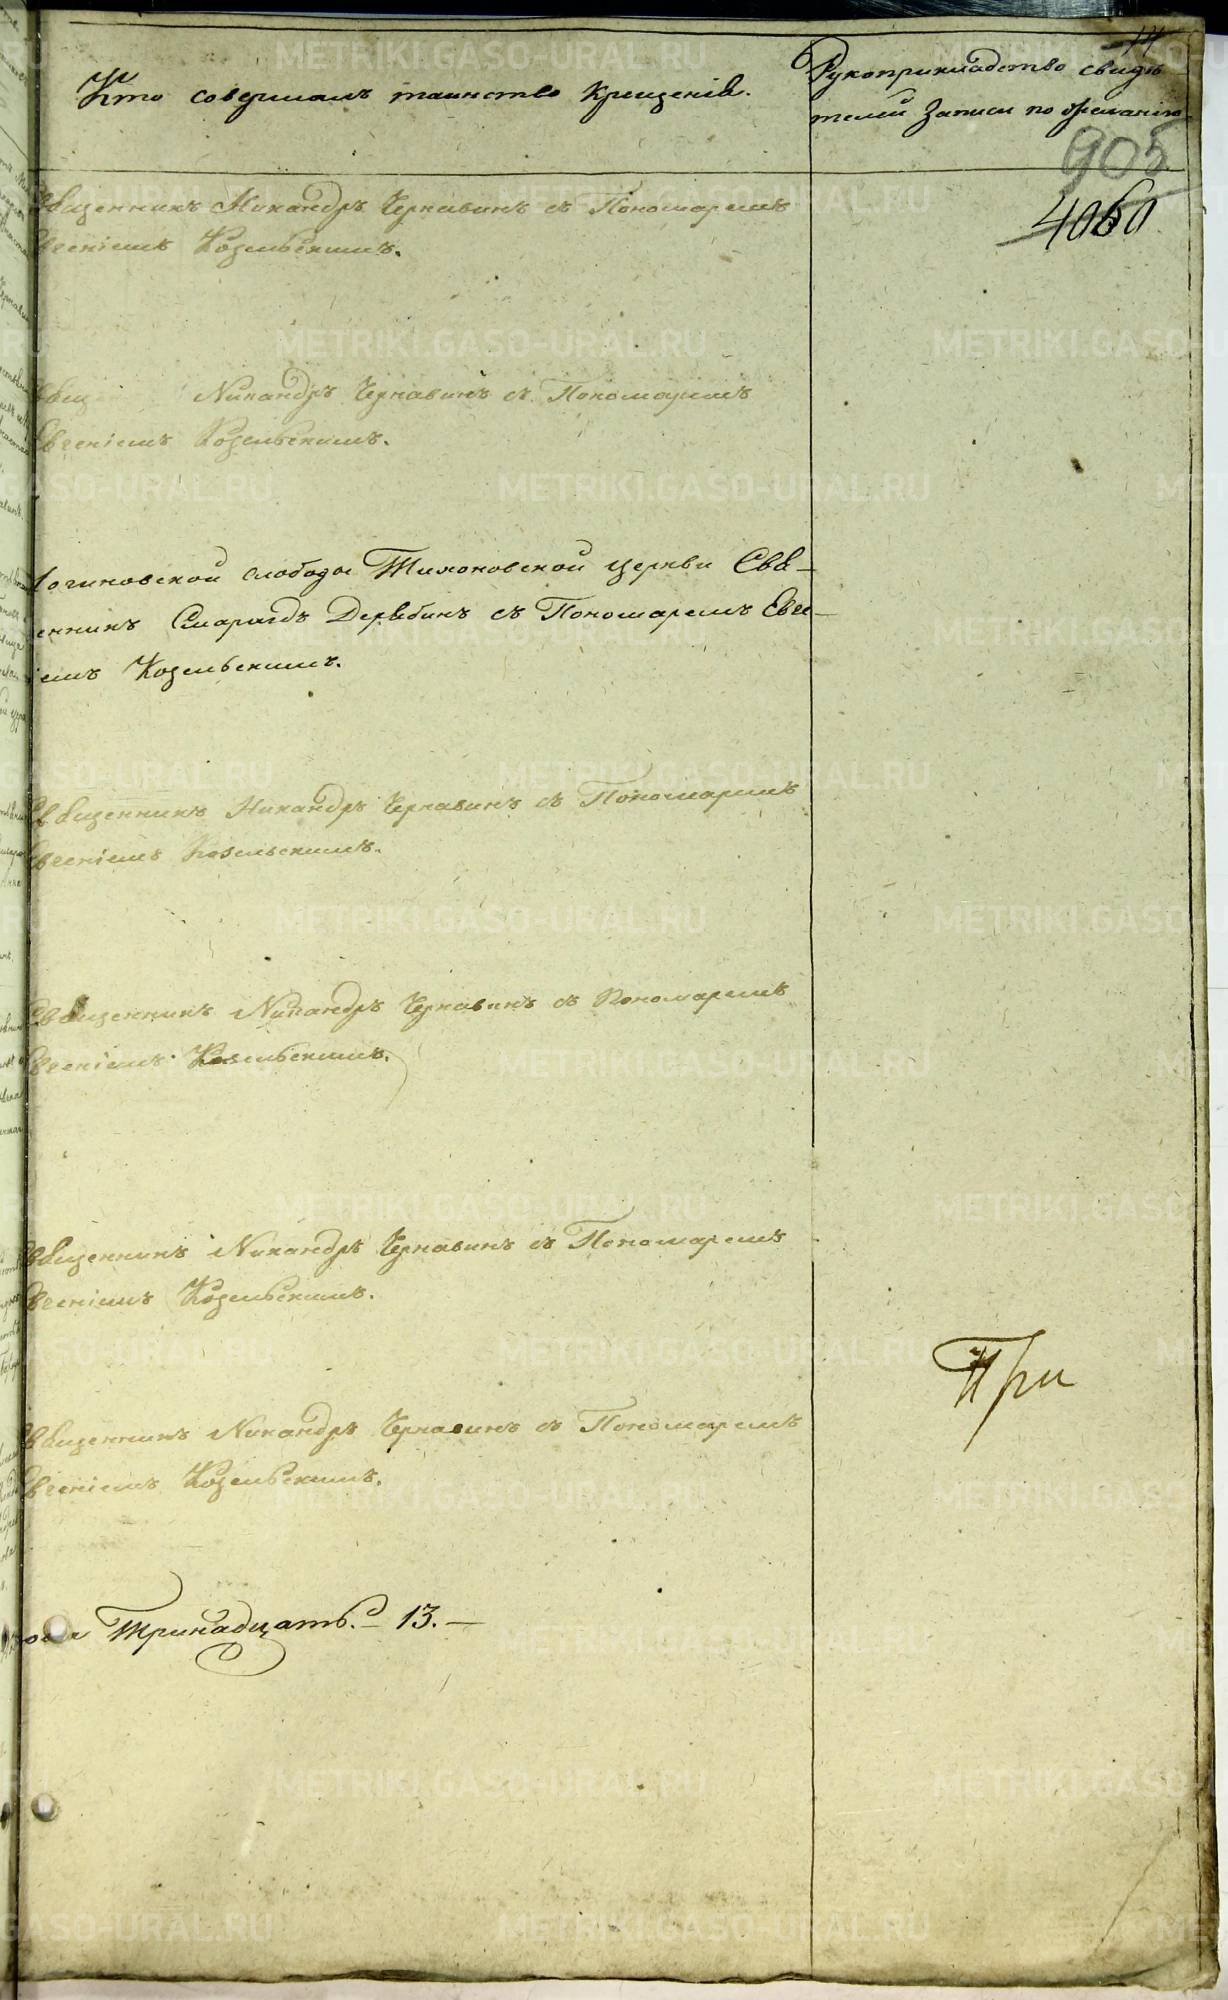 14
Кто совершалъ таинство крещенія.
Рукоприкладство свидѣ
телей записи по желанію.
905
4060
Священникъ Никандръ Чернавинъ съ Пономаремъ
Евгеніемъ Козельскимъ.
Никандръ Чернавинъ съ Пономаремъ
Евгеніемъ Козельскимъ.
Логиновской слободы Тихоновской церкви Свя-
енникъ Смарагдъ Дерябинъ съ Пономаремъ Евге-
іемъ Козельскимъ.
Священникъ Никандръ Чернавинъ съ Пономаремъ
Евгеніемъ Козельскимъ.
Священникъ Никандръ Чернавинъ съ Пономаремъ
Евгеніемъ Козельскимъ.
Священникъ Никандръ Чернавинъ съ Пономаремъ
Евгеніемъ Козельскимъ.
При
Священникъ Никандръ Чернавинъ съ Пономаремъ
Евгеніемъ Козельскимъ.
Тринадцать. – 13. –
METRIKI.GASO-URAL.RU